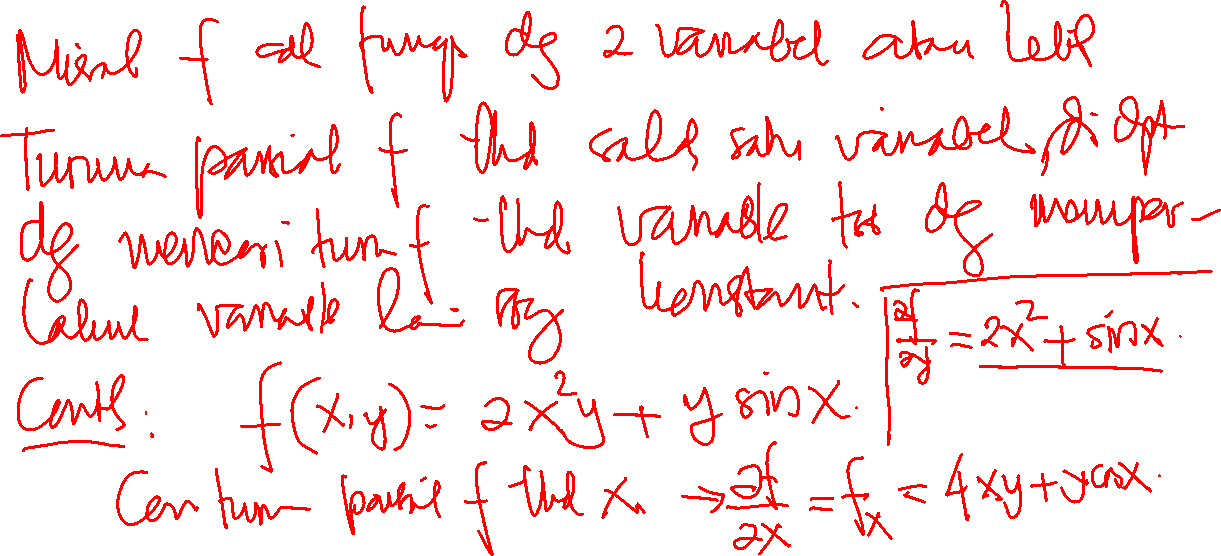 Misal f adl fungs dg 2 variabel atau lebih
Turunan parsial f thd salah satu variabel, didpt
dg mencari turn f thd variable tsb dg memper-
lakuk variable lain sbg konstant.
∂f/∂y = 2x² + sin x.
Contoh: f(x,y) = 2x²y + y sin x.
Cari turn parsial f thd x, → ∂f/∂x = fₓ = 4xy + y cos x.